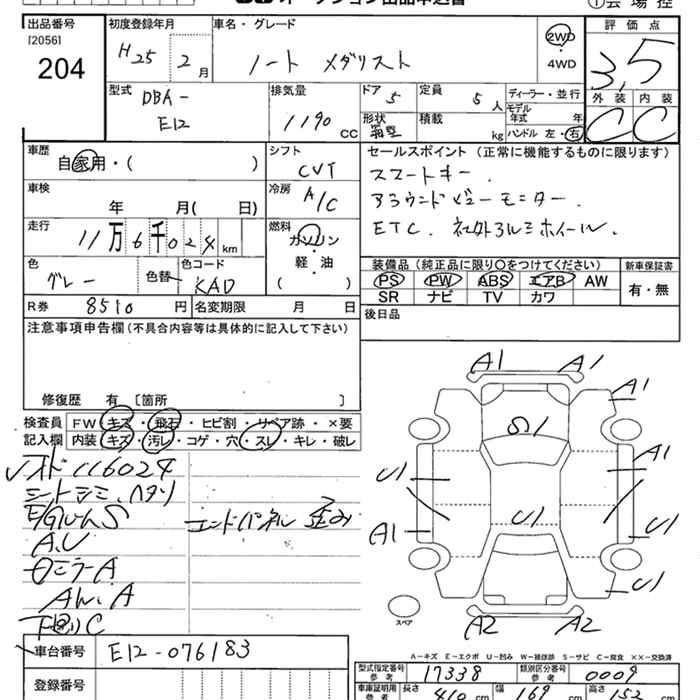 出品番号
[2056]
204
初度登録年月
H25 2月
車名・グレード
ノート メダリスト
2WD
・
4WD
評価点
3,5
外装 内装
C C
型式
DBA-
E12
排気量
1190 CC
ドア 5
定員 5人
形状 箱型
積載 kg
ディーラー・並行
モデル年式 年
ハンドル 左・右
車歴
自家用・( )
シフト
CVT
車検
年 月( 日)
冷房
A/C
走行
11万6千024km
燃料
ガソリン
軽・油
( )
色
グレー
色替
色コード
KAD
R券 8510円
名変期限 月 日
セールスポイント(正常に機能するものに限ります)
スマートキー.
アラウンドビューモニター.
ETC. 社外アルミホイール.
装備品(純正品に限り○をつけてください)
PS PW ABS エアB AW
SR ナビ TV カワ
新車保証書
有・無
後日品
注意事項申告欄(不具合内容等は具体的に記入して下さい)
修復歴 有 [箇所 ]
検査員
記入欄
FW キズ・飛石・ヒビ割・リペア跡・×要
内装 キズ・汚レ・コゲ・穴・スレ・キレ・破レ
116024
シートシミ.ヘタリ
エンドパネル 歪み
A.U
ミラーA
AW.A
下廻りC
A1 A1
A1
S1
A1
U1
U1
A1
U1
U1
A2 A2
スペア
A-キズ E-エクボ U-凹み W-補修跡 S-サビ C-腐食 ××-交換済
車台番号 E12-076183
登録番号
型式指定番号
参考
17338
類別区分番号
参考
0009
車庫証明用
参考
長さ 410cm
幅 169cm
高さ 152cm